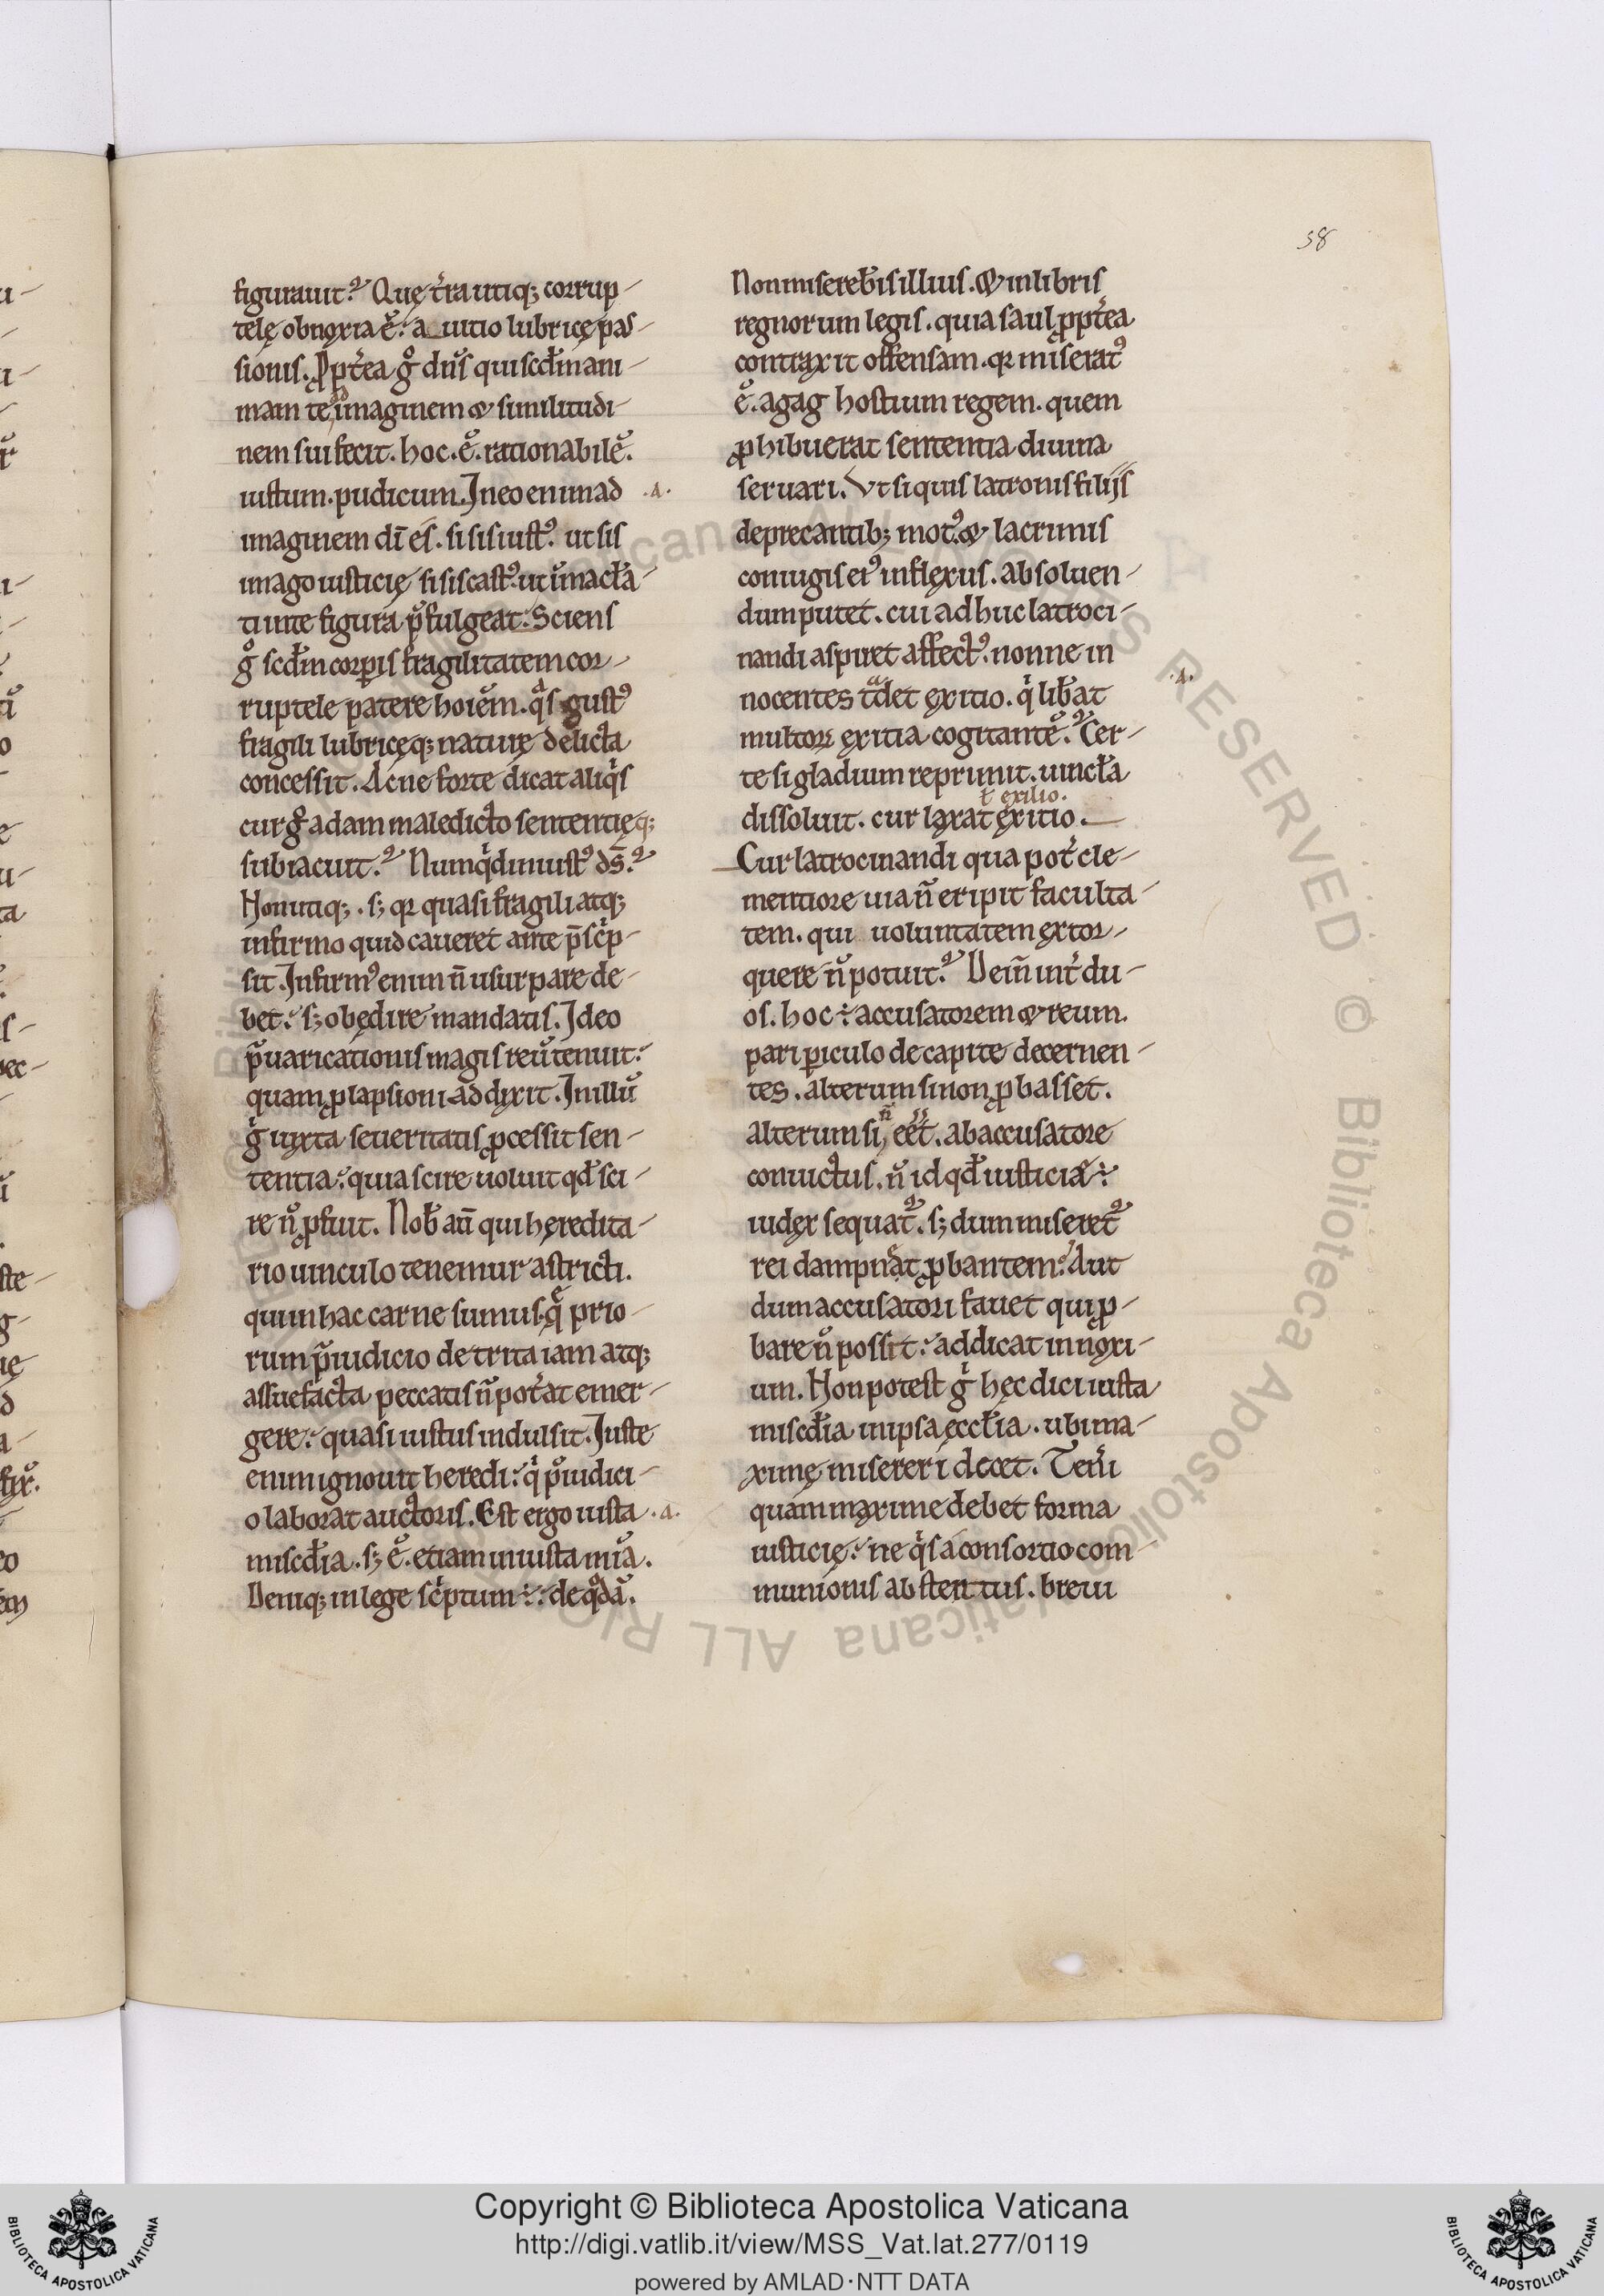 58
figurauit? Quę t̓ra utiq; corrup-
telę obnoxia ē: a uitio lubricę pas-
sionis. P̱pt̓ea g̊ dn̄s qui scd̄m ani-
mam te imaginem & similitudi-
nem sui fecit. hoc. ē. rationabilē.
iustum. pudicum. In eo enim ad .A.
imaginem dī es. si sis iustꝰ. ut sis
imago iusticię si sis castꝰ. ut ī mactła
ti in te figura p̄fulgeat. Sciens
g̊ scd̄m corꝑis fragilitatem cor-
ruptele patere hoiēm. qͣs gustꝰ
fragili lubricęq; naturę delicta
concessit. Ac ne forte dicat aliqͥs
cur g̊ adam maledicto sententięq;
subiacuit? Numqͥd iniustꝰ d̄s?
Non utiq;. s; qꝛ quasi fragili atq;
infirmo quid caueret ante p̄scͥp-
sit. Infirmꝰ enim n̄ usurpare de-
bet: s; obędire mandatis. Ideo
p̄uaricationis magis reū tenuit:
quam ꝓlapsioni addixit. In illū
gͥ iuxta seueritatis ꝓcessit sen-
tentia: quia scire uoluit qd̄ sci-
re n̄ ꝓfuit. Nob̄ aū qui heredita-
rio uinculo tenemur astricti.
qui in hac carne sumus q̨ prio-
rum p̄iudicio detrita iam atq;
assuefacta peccatis n̄ pot̓at emer-
gere: quasi iustus indulsit. Iuste
enim ignouit heredi: qͥ p̄iudici-
o laborat auctoris. Est ergo iusta .a.
miscd̄ia. s; ē. etiam iniusta mīa.
Deniq; in lege scͥptum ÷: de qͦdā.
Non misereb̄is illius. & in libris
regnorum legis. quia saul ꝓpt̓ea
contraxit offensam. qꝛ miseratꝰ
ē. agag hostium regem. quem
ꝓhibuerat sententia diuina
seruari. Vt si quis latronis filijs
deprecantib; motꝰ. & lacrimis
coniugis eiꝰ inflexus. absoluen-
dum putet. cui adhuc latroci-
nandi aspiret affectꝰ. nonne in
nocentes tͣdet exitio. qͥ lib̄at .A.
multoꝝ exitia cogitantē? Cer-
te si gladium reprimit. uincła
ł exilio.
dissoluit. cur laxat exitio.
Cur latrocinandi qua pot̓ cle-
mentiore uia n̄ eripit faculta-
tem. qui uoluntatem extor-
quere n̄ potuit? Dein̄ int̓ du-
os. hoc ÷ accusatorem & reum.
pari ꝑiculo de capite decernen-
tes. alterum si non ꝓbasset.
alterum si n̄ eēt. ab accusatore
conuictus. n̄ id qd̄ iusticiæ ÷
iudex sequat᷑. s; dum miseret᷑
rei dampnat ꝓbantem: Aut
dum accusatori fauet qui ꝓ-
bare n̄ possit: addicat innoxi-
um. Non potest gͥ hęc dici iusta
miscd̄ia in ipsa eccłia. ubi ma-
ximę misereri decet. Teneri
quam maxime debet forma
iusticię: ne qͥs a consortio com-
munionis abstentus. breui
Copyright © Biblioteca Apostolica Vaticana
http://digi.vatlib.it/view/MSS_Vat.lat.277/0119
powered by AMLAD·NTT DATA